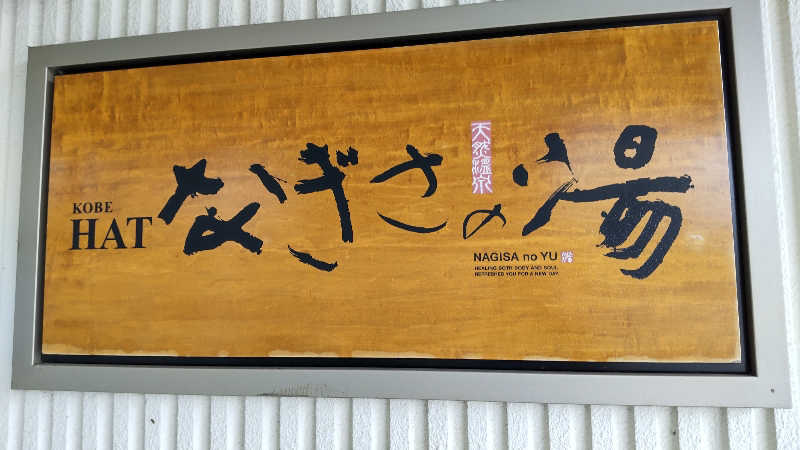 KOBE
HAT
なぎさの湯
天然温泉
NAGISA no YU
HEALING BOTH BODY AND SOUL.
REFRESHED YOU FOR A NEW DAY.